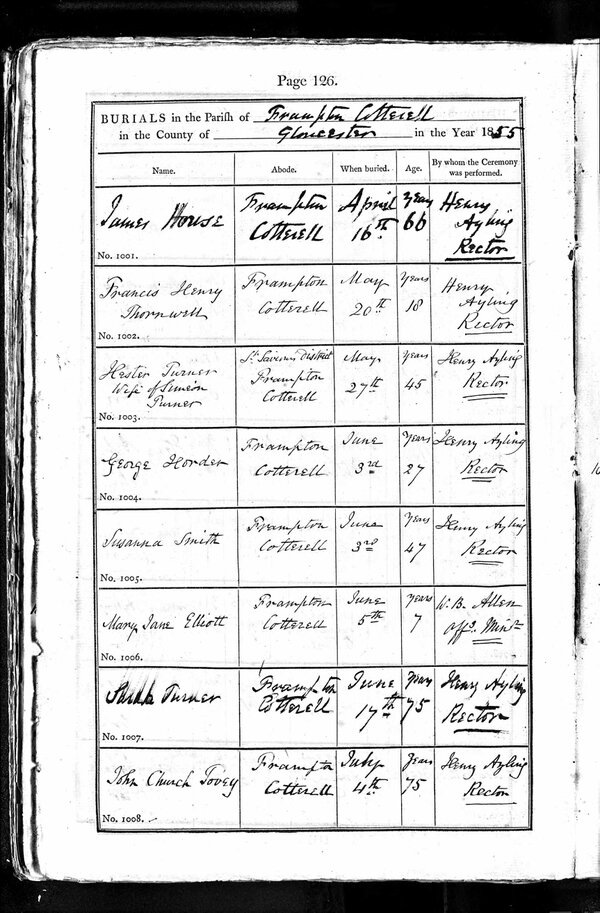 Page 126.
BURIALS in the Parish of Frampton Cotterell
in the County of Gloucester in the Year 1855
Name. Abode. When buried. Age. By whom the Ceremony was performed.
James House Frampton April Years Henry
Cotterell 16th 66 Ayling
Rector
No. 1001.
Francis Henry Frampton May Years Henry
Thornwell Cotterell 20th 18 Ayling
Rector
No. 1002.
Hester Turner St Saviours District May Years Henry Ayling
Wife of Simeon Frampton 27th 45 Rector
Turner Cotterell
No. 1003.
George Horder Frampton June Years Henry Ayling
Cotterell 3rd 27 Rector
No. 1004.
Susanna Smith Frampton June Years Henry Ayling
Cotterell 3rd 47 Rector
No. 1005.
Mary Jane Elliott Frampton June Years W. B. Allen
Cotterell 5th 7 Offg Minr
No. 1006.
Turner Frampton June Years Henry Ayling
Cotterell 17th 75 Rector
No. 1007.
John Church Tovey Frampton July Years Henry Ayling
Cotterell 4th 75 Rector
No. 1008.